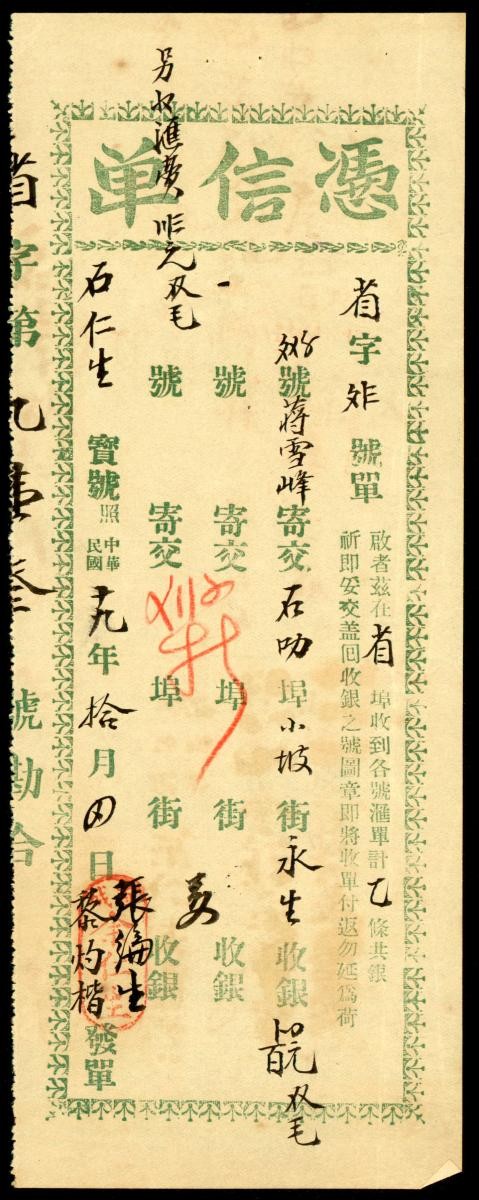 憑信单
省字 號單
啟者茲在省埠收到各號滙單計乙條共銀
祈即妥交盖囘收銀之號圖章即將收單付返勿延爲荷
號蔣雪峰寄交石叻埠小坡街永生收銀 双毛
號 寄交 埠 街 收銀
號 寄交 埠 街 收銀
石仁生寶號照中華民國十九年拾月四日 發單
張綸生
蔡灼楷
另收滙費 元双毛
省字第九壹叁號勘合